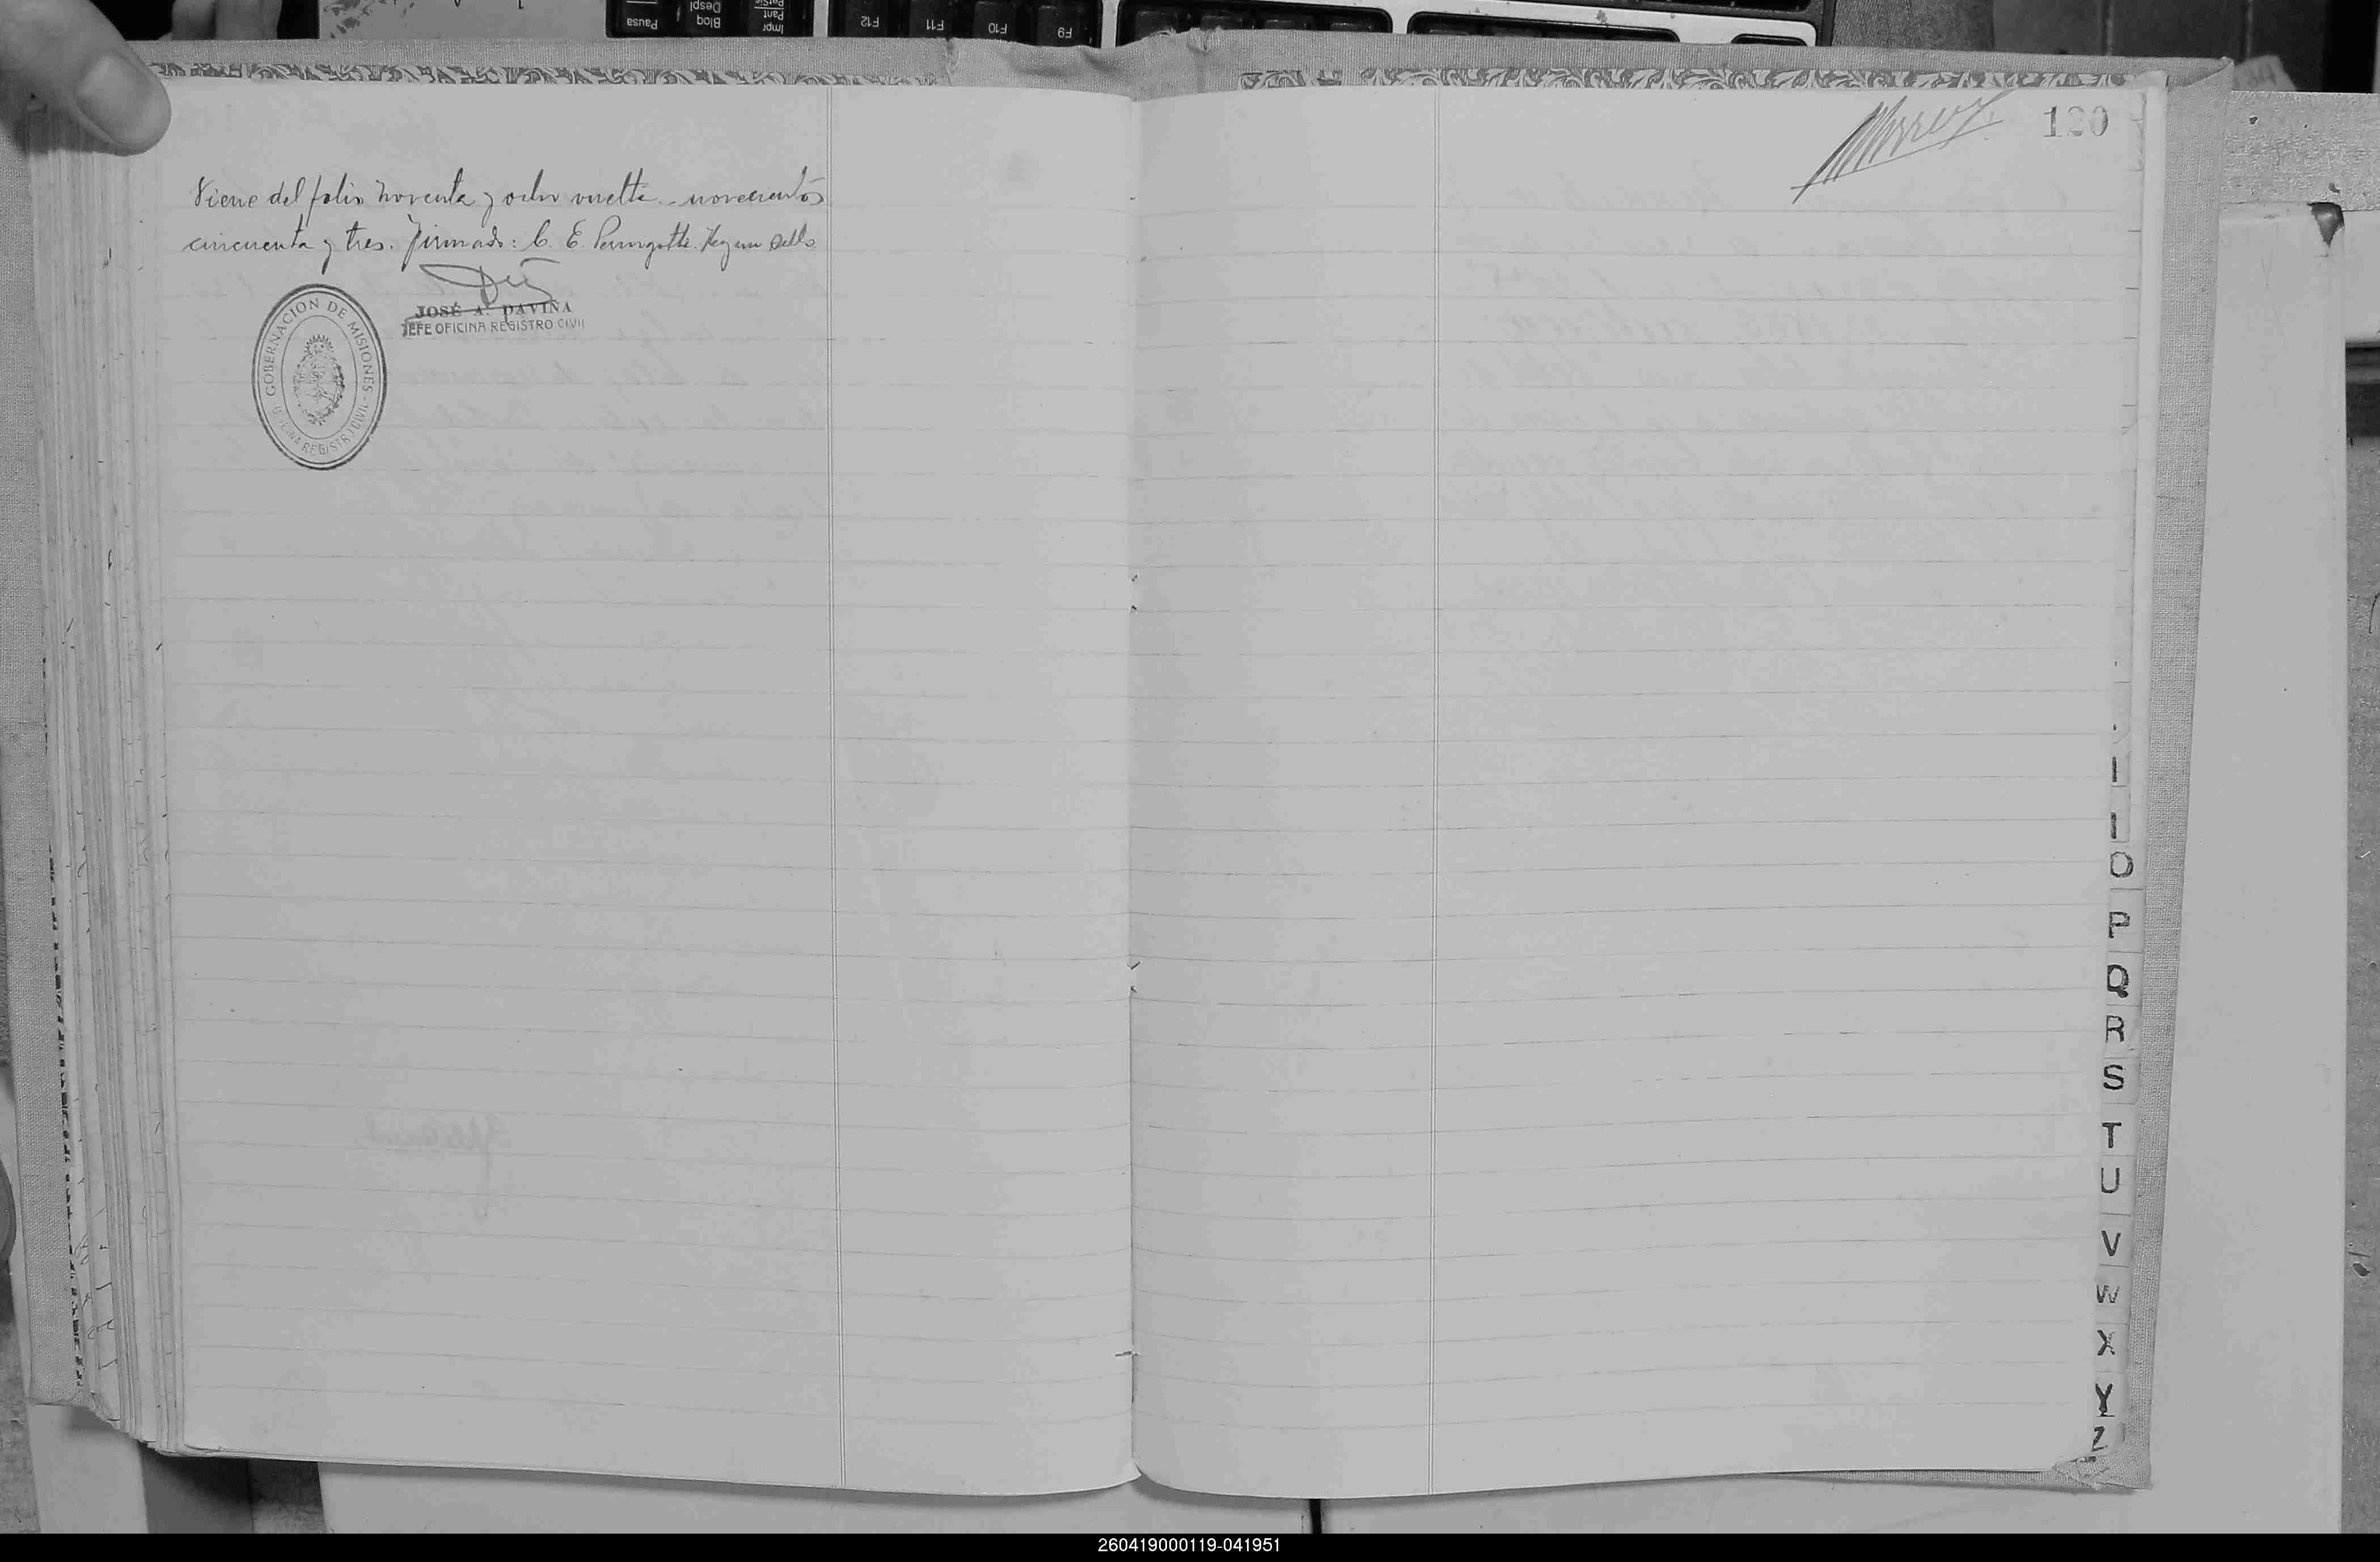 Viene del folio noventa y ocho vuelta - novecientos
cincuenta y tres. Firmado: C. E.
JOSÉ A. DAVIÑA
JEFE OFICINA REGISTRO CIVIL
GOBERNACION DE MISIONES
OFICINA REGISTRO CIVIL
120
I
I
O
P
Q
R
S
T
U
V
W
X
Y
Z
Pausa
Bloq
Despl
Impr
Pant
PetSis
F12
F11
F10
F9
260419000119-041951